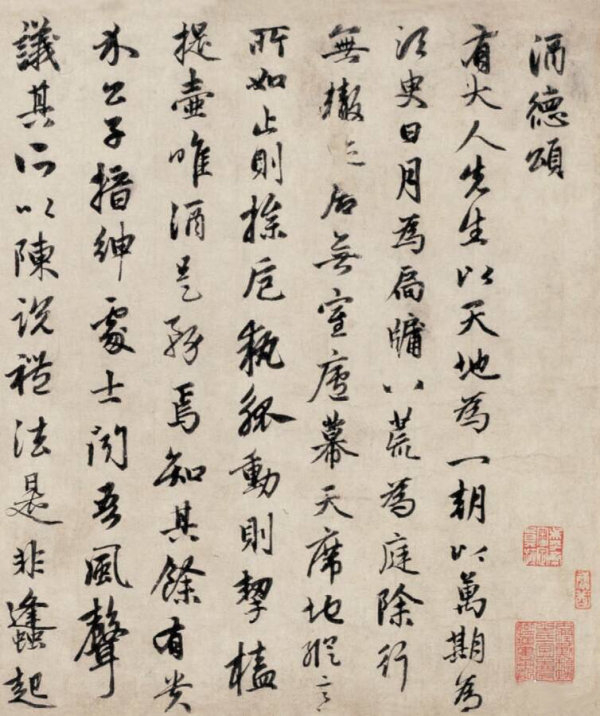 酒德頌
有大人先生以天地為一朝以萬期為
須臾日月為扃牖八荒為庭除行
無轍迹居無室廬幕天席地縱意
所如止則操卮執觚動則挈榼
提壺唯酒是務焉知其餘有貴
介公子搢紳處士聞吾風聲
議其所以陳說禮法是非蠭起